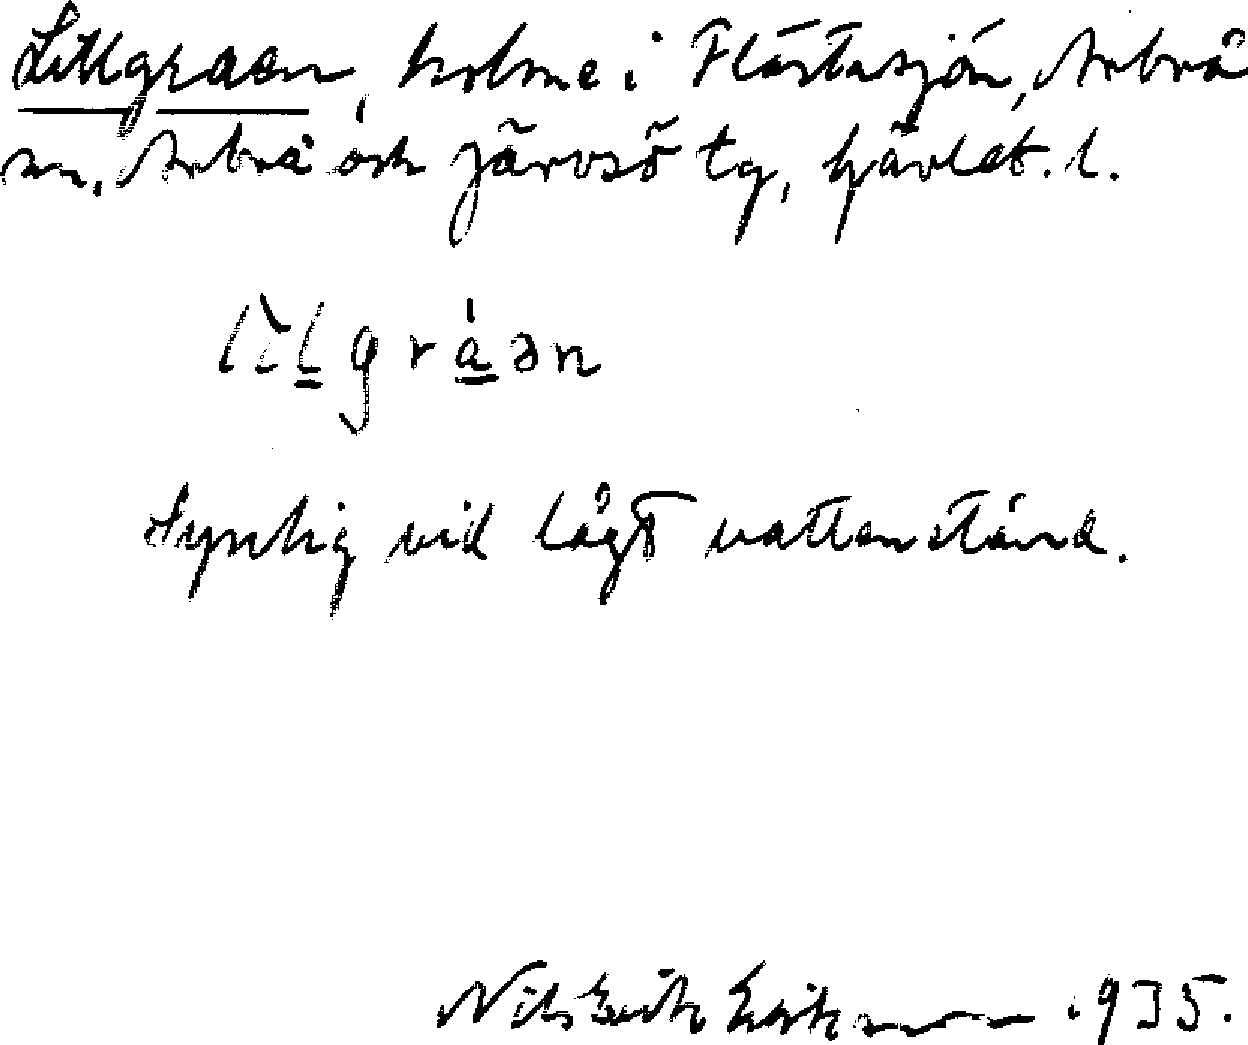 Lillgraen, holme i Flästasjön, Arbrå
sn, Arbrå och Järvsö tg, Gävleb. l.
lìlgráən
Synlig vid lågt vattenstånd.
Nils Erik Eriksson 1935.